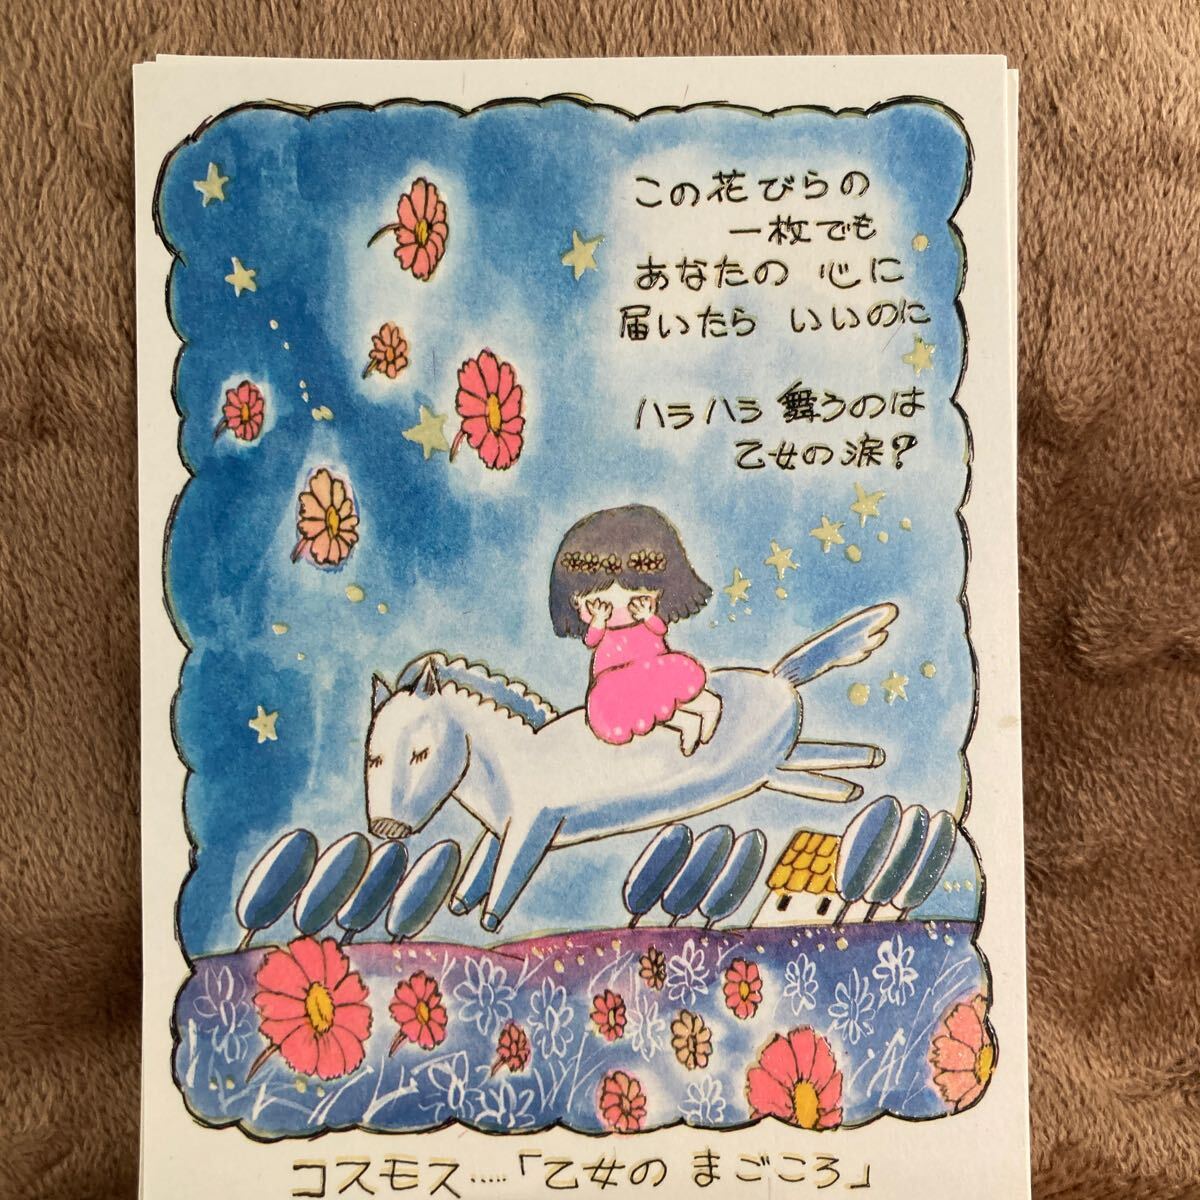 この花びらの
一枚でも
あなたの 心に
届いたら いいのに
ハラハラ 舞うのは
乙女の涙?
コスモス……「乙女の まごころ」